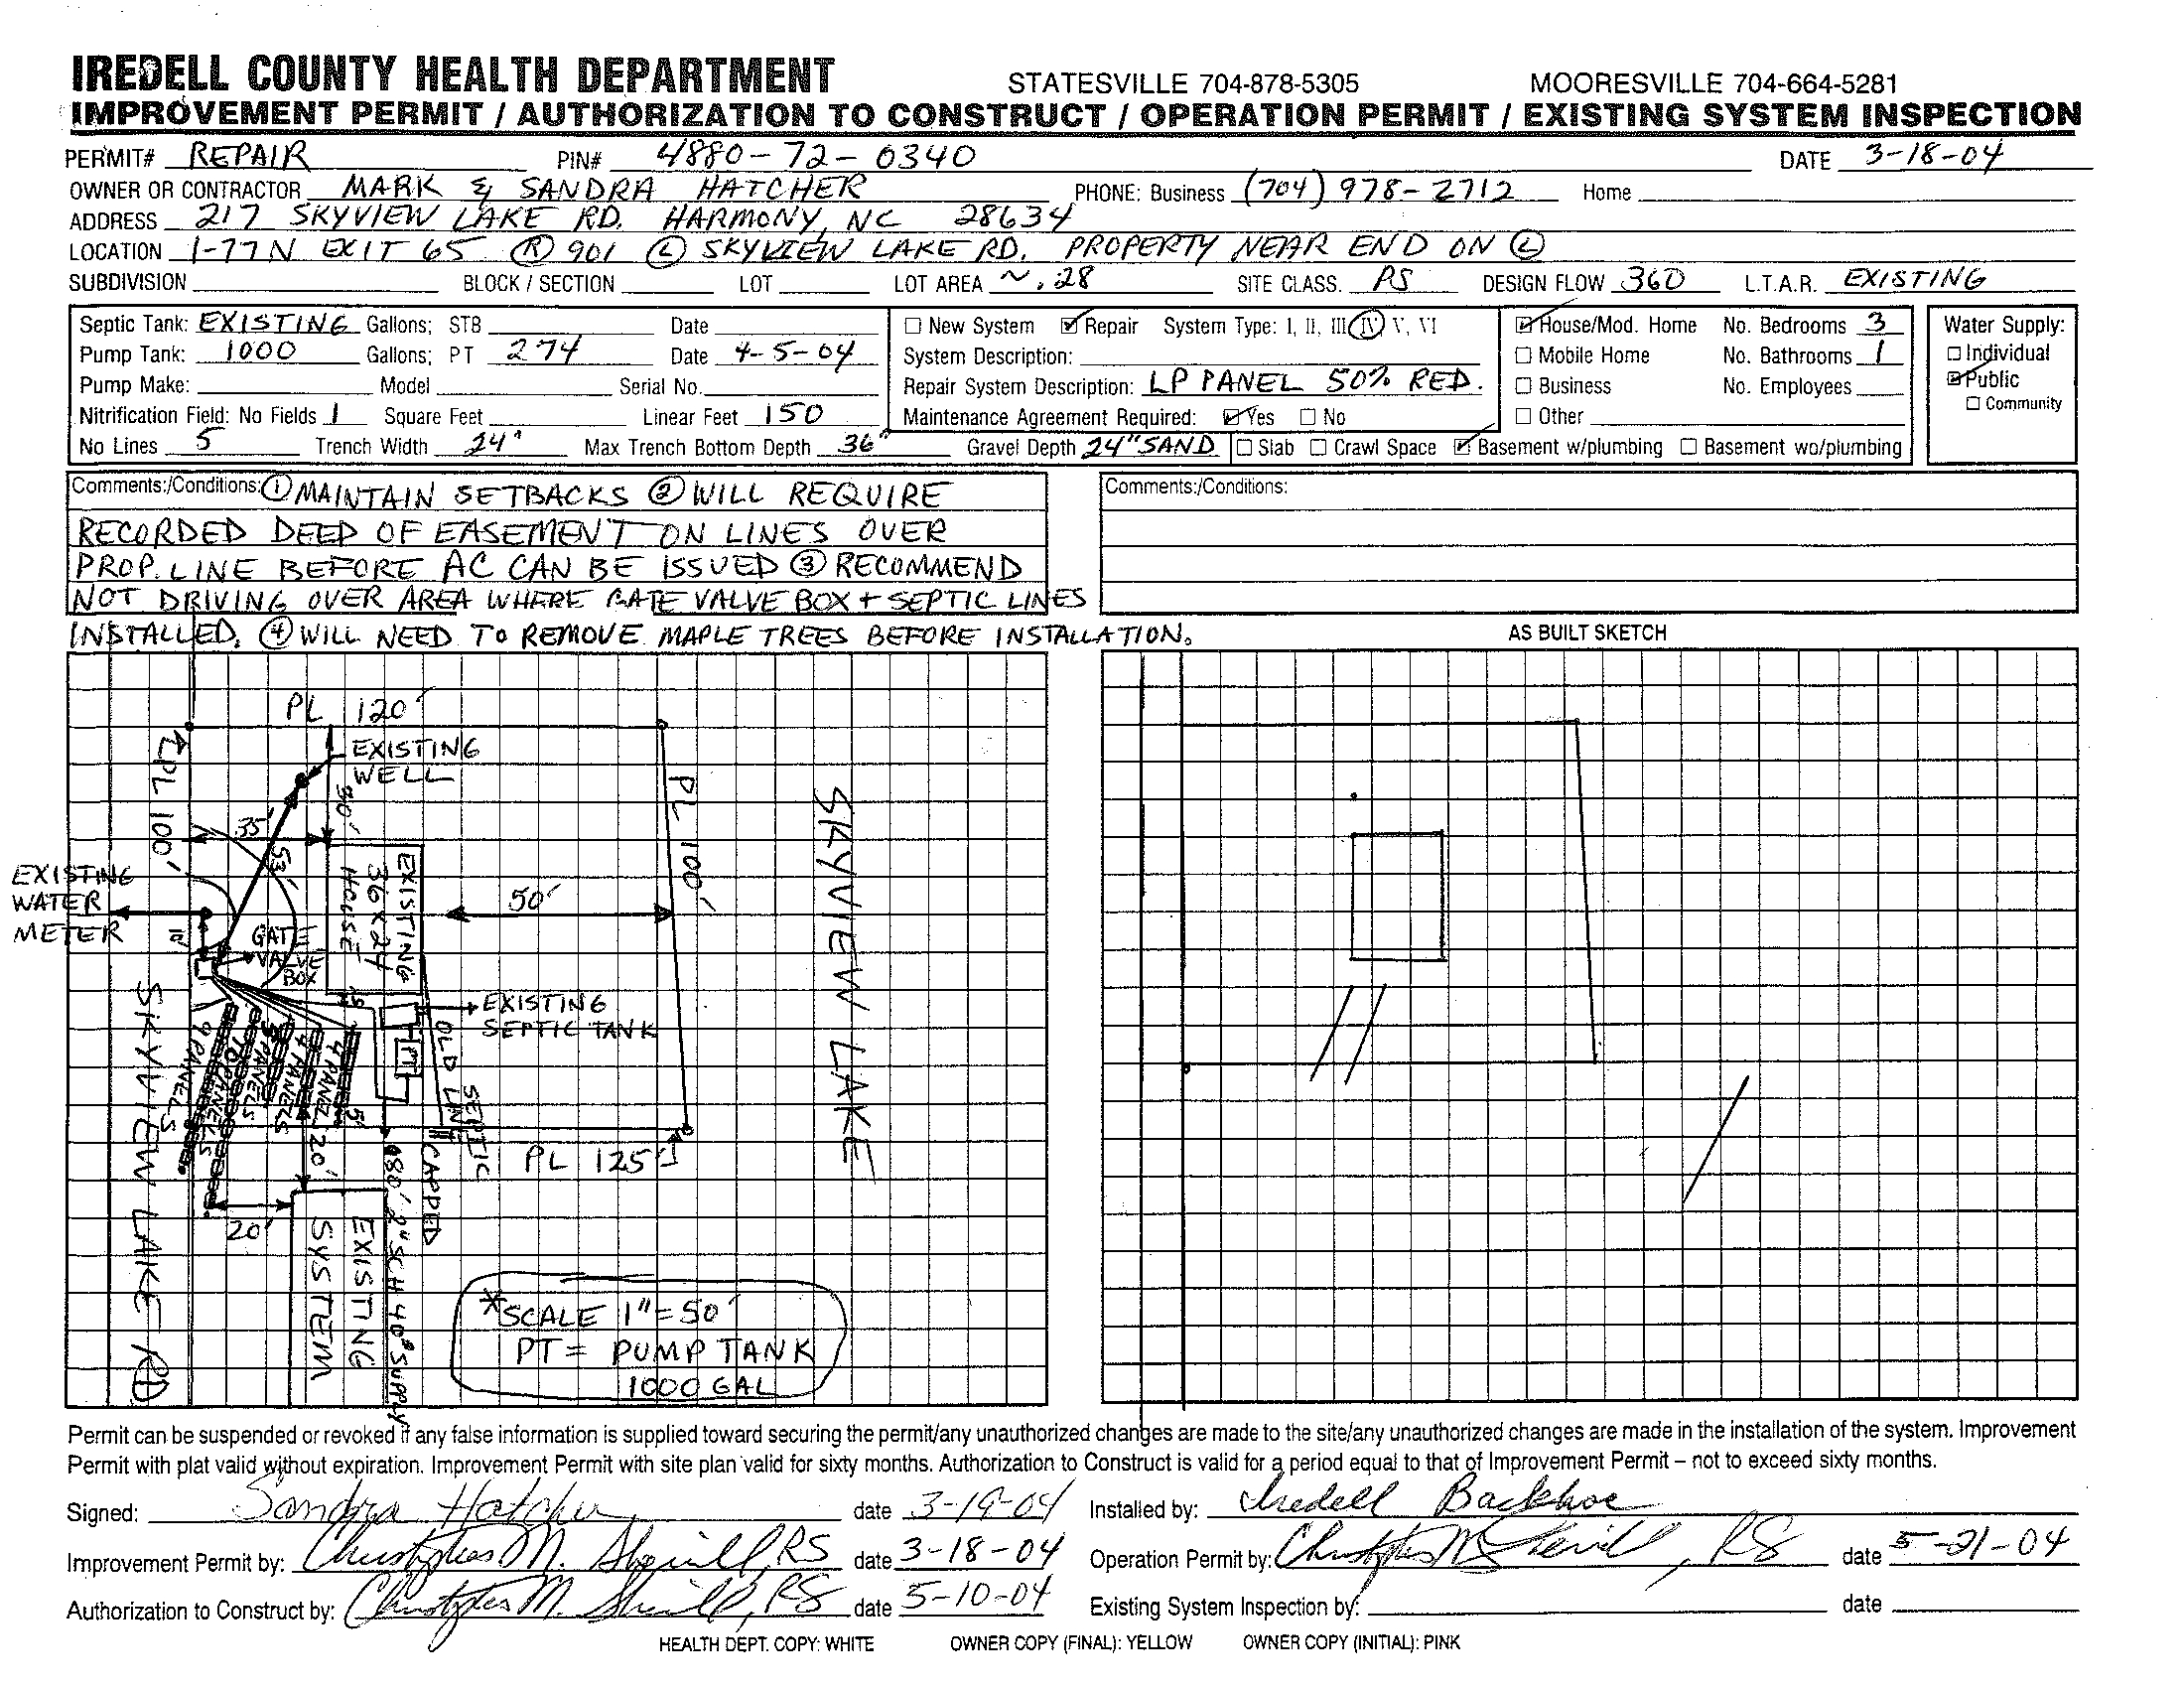 IREDELL COUNTY HEALTH DEPARTMENT STATESVILLE 704-878-5305 MOORESVILLE 704-664-5281
IMPROVEMENT PERMIT / AUTHORIZATION TO CONSTRUCT / OPERATION PERMIT / EXISTING SYSTEM INSPECTION
PERMIT# REPAIR PIN# 4880-72-0340 DATE 3-18-04
OWNER OR CONTRACTOR MARK & SANDRA HATCHER PHONE: Business (704) 978-2712 Home
ADDRESS 217 SKYVIEW LAKE RD. HARMONY, NC 28634
LOCATION I-77N EXIT 65 Ⓡ 901 Ⓛ SKYVIEW LAKE RD. PROPERTY NEAR END ON Ⓛ
SUBDIVISION BLOCK / SECTION LOT LOT AREA ~.28 SITE CLASS. PS DESIGN FLOW 360 L.T.A.R. EXISTING
Septic Tank: EXISTING Gallons; STB Date
Pump Tank: 1000 Gallons; PT 274 Date 4-5-04
Pump Make: Model Serial No.
Nitrification Field: No Fields 1 Square Feet Linear Feet 150
No Lines 5 Trench Width 24" Max Trench Bottom Depth 36" Gravel Depth 24" SAND
☐ New System ☑ Repair System Type: I, II, III IV V, VI
System Description:
Repair System Description: LP PANEL 50% RED.
Maintenance Agreement Required: ☑ Yes ☐ No
☑ House/Mod. Home No. Bedrooms 3
☐ Mobile Home No. Bathrooms 1
☐ Business No. Employees
☐ Other
☐ Slab ☐ Crawl Space ☑ Basement w/plumbing ☐ Basement wo/plumbing
Water Supply:
☐ Individual
☑ Public
☐ Community
Comments:/Conditions: ① MAINTAIN SETBACKS ② WILL REQUIRE
RECORDED DEED OF EASEMENT ON LINES OVER
PROP. LINE BEFORE AC CAN BE ISSUED ③ RECOMMEND
NOT DRIVING OVER AREA WHERE GATE VALVE BOX + SEPTIC LINES
INSTALLED. ④ WILL NEED TO REMOVE MAPLE TREES BEFORE INSTALLATION.
Comments:/Conditions:
AS BUILT SKETCH
PL 120'
EXISTING
WELL
PL 100'
30'
35'
53'
EXISTING
WATER
METER
10'
GATE
VALVE
BOX
EXISTING
36 X 24
HOUSE
50'
PL 100'
SKYVIEW LAKE
EXISTING
SEPTIC TANK
PT
OLD SEPTIC
LINE
CAPPED
9 PANELS
10 PANELS
PANELS
4 PANELS
4 PANEL
5'
20'
20'
PL 125'
SKYVIEW LAKE RD
EXISTING
SYSTEM
80' 2" SCH 40 SUPPLY
*SCALE 1" = 50'
PT = PUMP TANK
1000 GAL
Permit can be suspended or revoked if any false information is supplied toward securing the permit/any unauthorized changes are made to the site/any unauthorized changes are made in the installation of the system. Improvement
Permit with plat valid without expiration. Improvement Permit with site plan valid for sixty months. Authorization to Construct is valid for a period equal to that of Improvement Permit – not to exceed sixty months.
Signed: Sandra Hatcher date 3-19-04 Installed by: Iredell Backhoe
Improvement Permit by: Christopher M. Sherrill, RS date 3-18-04 Operation Permit by: Christopher M. Sherrill, RS date 5-21-04
Authorization to Construct by: Christopher M. Sherrill, RS date 5-10-04 Existing System Inspection by: date
HEALTH DEPT. COPY: WHITE OWNER COPY (FINAL): YELLOW OWNER COPY (INITIAL): PINK